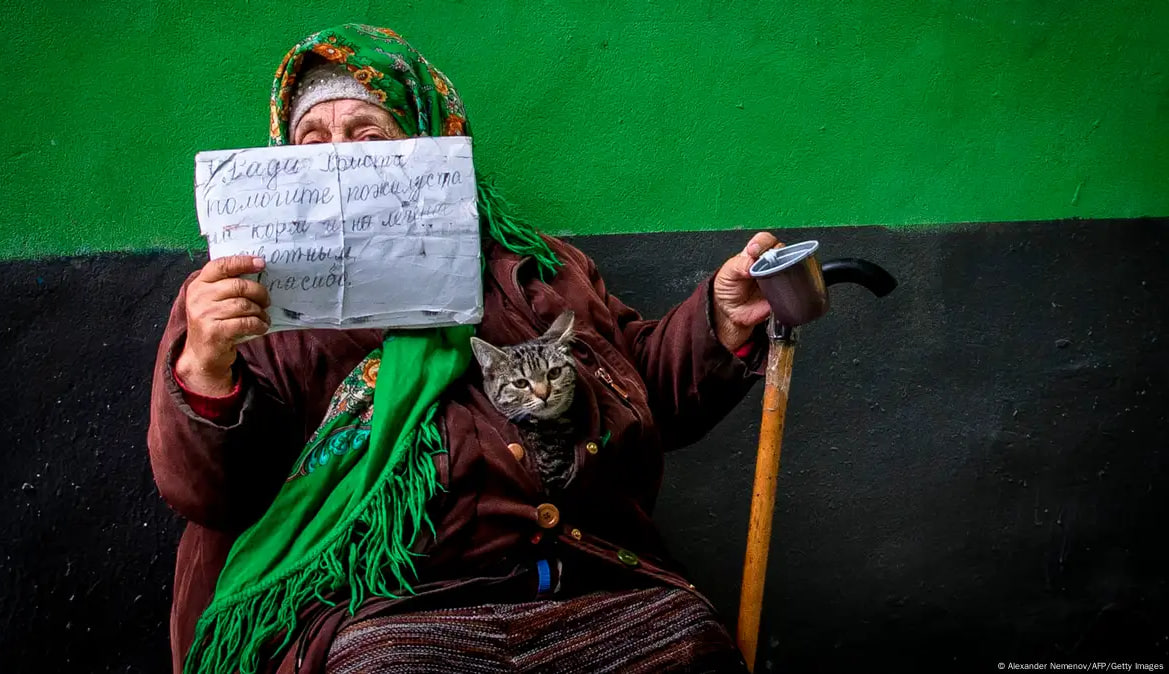 Ради Христа
помогите пожалуста
на корм и на лечение
животным
Спасибо.
© Alexander Nemenov/AFP/Getty Images